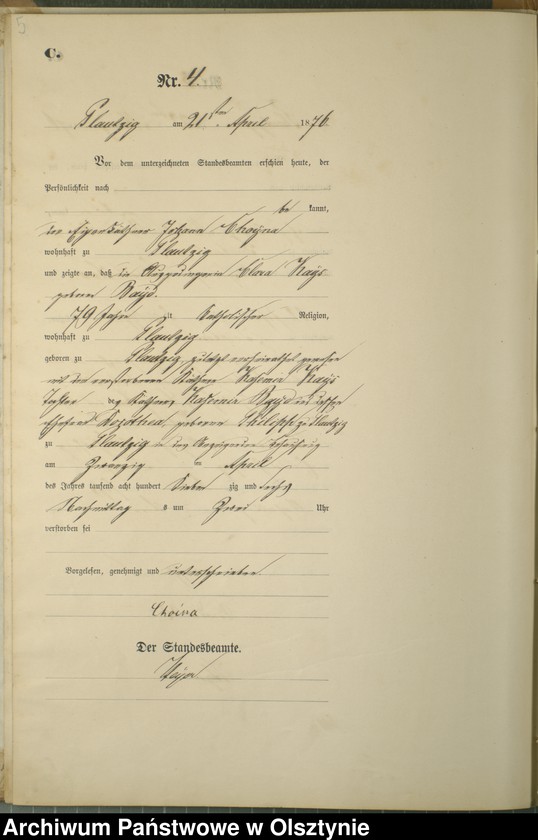 5
C.
Nr. 4.
Plautzig am 21ten April 1876
Vor dem unterzeichneten Standesbeamten erschien heute, der
Persönlichkeit nach
be kannt,
der Eigenkäthner Johann Choyna
wohnhaft zu Plautzig
und zeigte an, daß die Clara Kays
geborne Bayd.
79 Jahre alt Catholischer Religion,
wohnhaft zu Plautzig
geboren zu Plautzig, zuletzt verheirathet gewesen
mit dem verstorbenen Käthner Kasemir Kays
Tochter des Käthners Kasemir Bayd und dessen
Ehefrau Dorothea, geborene Philipp zu Plautzig
zu Plautzig in des
am Zwanzig ten April
des Jahres tausend acht hundert Sieben zig und sechs
Nachmittag s um Zwei Uhr
verstorben sei
Vorgelesen, genehmigt und unterschrieben
Choina
Der Standesbeamte.
Archiwum Państwowe w Olsztynie